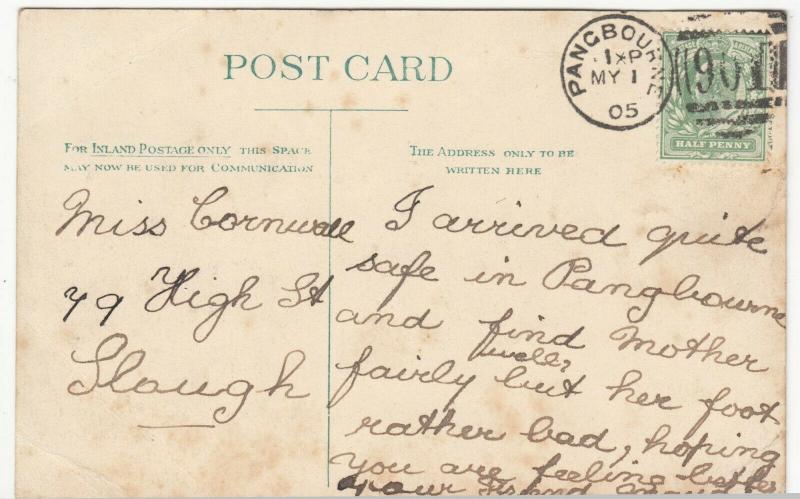 POST CARD
PANGBOURNE
1XP
MY 1
05
901
HALF PENNY
FOR INLAND POSTAGE ONLY THIS SPACE
MAY NOW BE USED FOR COMMUNICATION
THE ADDRESS ONLY TO BE
WRITTEN HERE
Miss Cornwall
79 High St
Slough
I arrived quite
safe in Pangbourne
and find Mother
well,
fairly but her foot
rather bad, hoping
you are feeling better
your friend